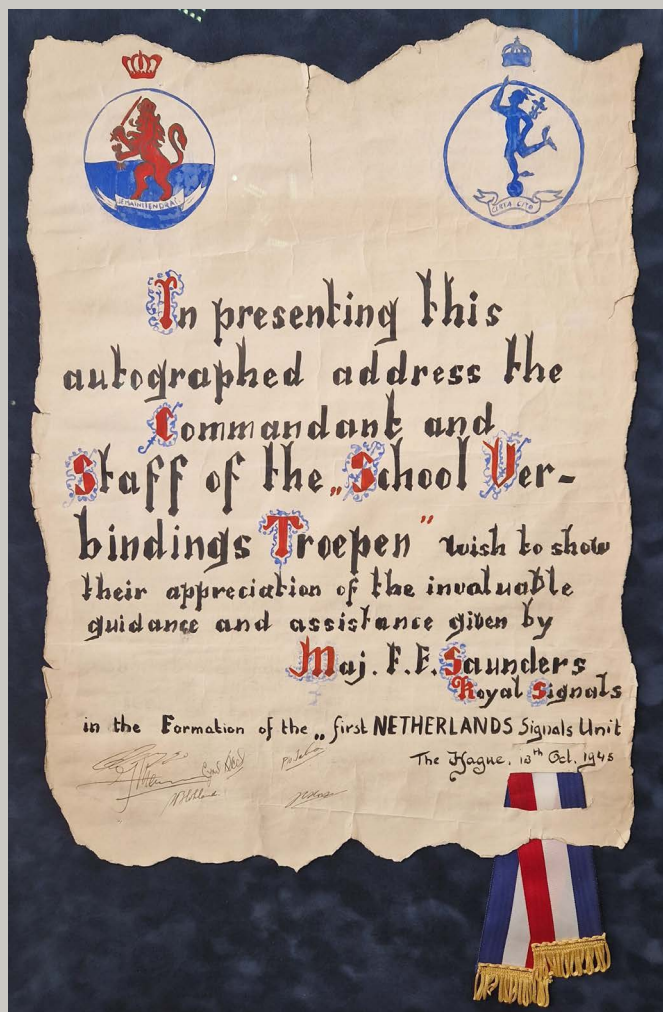 JE MAINTIENDRAI
CERTA CITO
In presenting this
autographed address the
Commandant and
Staff of the „School Ver-
bindings Troepen” wish to show
their appreciation of the invaluable
guidance and assistance given by
Maj. F. E. Saunders
Royal Signals
in the Formation of the „first NETHERLANDS Signals Unit
The Hague. 13th Oct. 1945